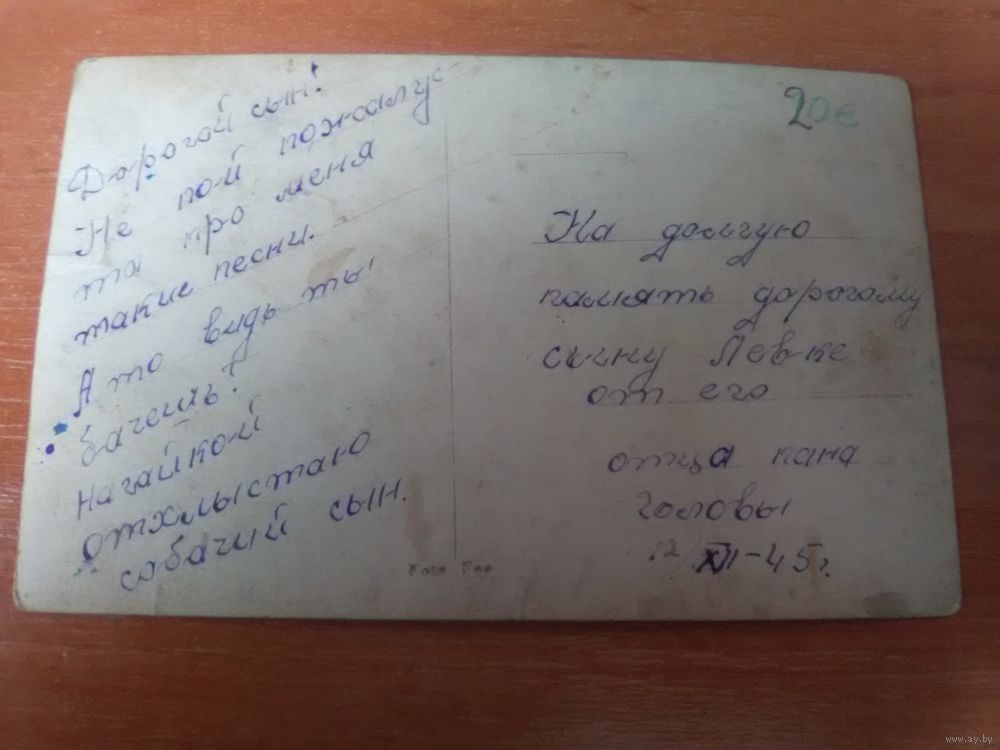 Дорогай сын!
Не пой пожалус-
та про меня
такие песни.
А то видь ты
бачешь?
нагайкой
отхлыстаю
собачий сын.
20€
На долгую
память дорогому
сыну Левке
от его
отца пана
Головы
12/XI-45г.
www.ay.by